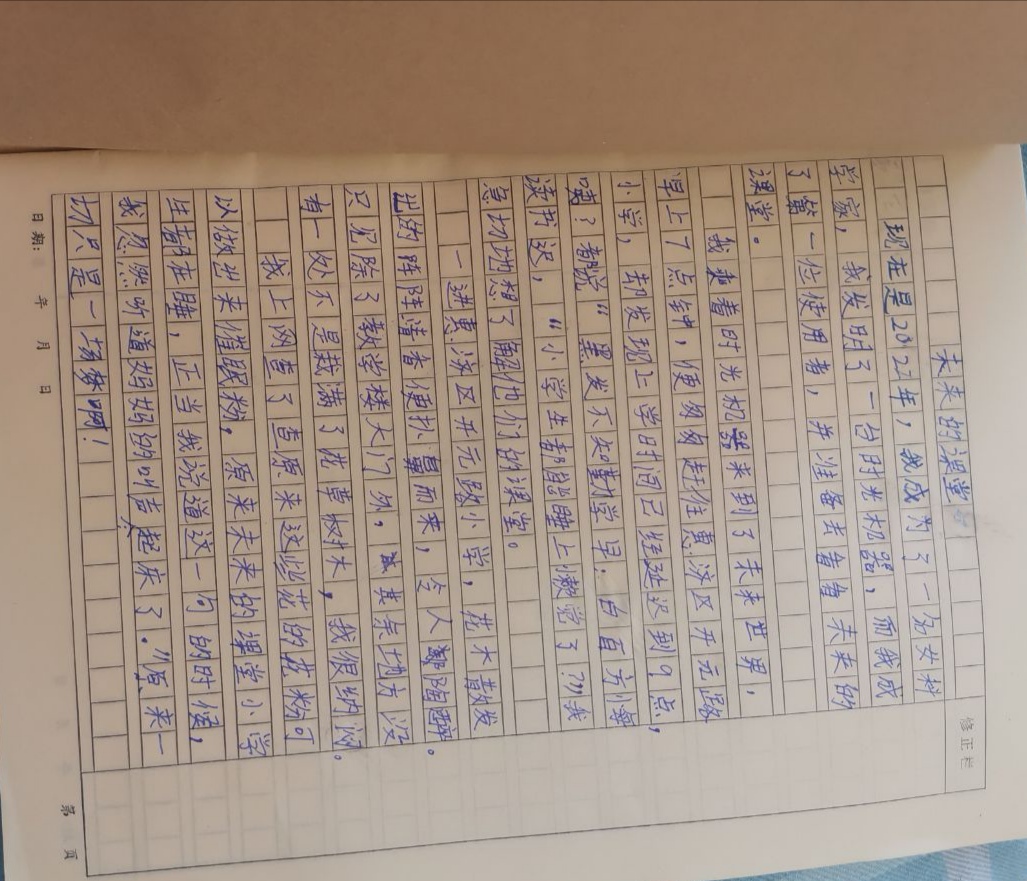 未来的课堂
现在是2022年，我成为了一名女科
学家，我发明了一台时光机器，而我成
了第一位使用者，并准备去看看未来的
课堂。
我乘着时光机器来到了未来世界，
早上7点钟，便匆匆赶往惠济区开元路
小学，却发现上学时间已经延迟到9点，
咦？都说“黑发不知勤学早，白首方悔
读书迟，“小学生都能睡上懒觉了？”我
急切地想了解他们的课堂。
一进惠济区开元路小学，花木散发
出的阵阵清香便扑鼻而来，令人陶醉。
只见除了教学楼大门外，其余地方没
有一处不是栽满了花草树木，我很纳闷。
我上网查了查原来这些花的花粉可
以做出来催眠粉，原来未来的课堂小学
生都在睡，正当我说道这一句的时候，
我忽然听道妈妈的叫声，起床了．“原来一
切只是一场梦啊！
修正栏
日期： 年 月 日
第 页